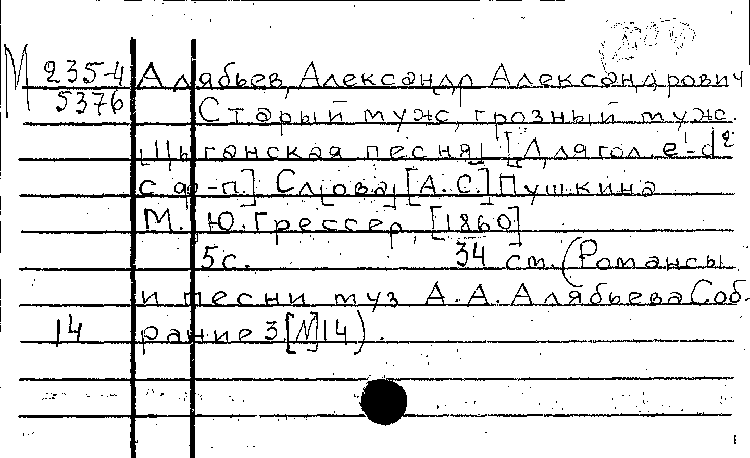 М 235-4 Алябьев, Александр Александрович
5376 Старый муж, грозный муж.
[Цыганская песня] [Для гол. e¹-d²
с ф-п.] Сл[ова] [А.С.] Пушкина
М. Ю. Грессер, [1860]
5 с. 34 см. (Романсы
и песни муз А.А. Алябьева Соб-
14 рание 3 [N] 14).